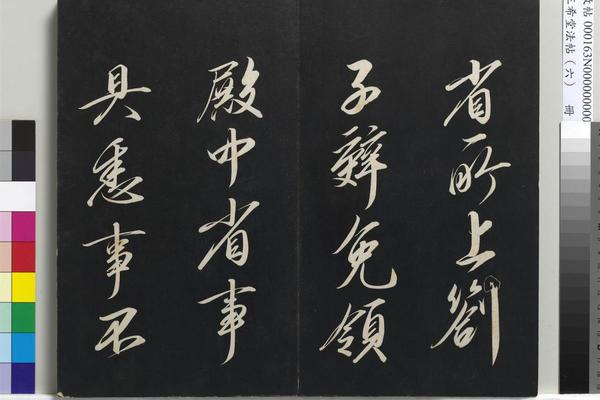 帖 000163N000000000
三希堂法帖（六） 冊
省所上劄
子辭免領
殿中省事
具悉事不